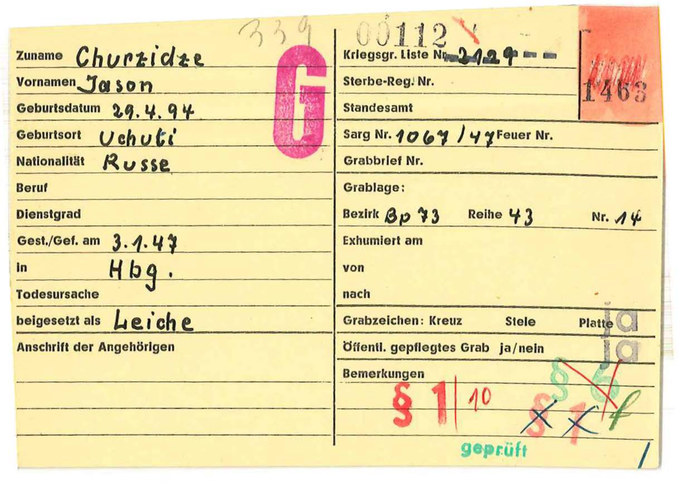 339
Zuname Churzidze
Vornamen Jason
Geburtsdatum 29.4.94
Geburtsort Uchuti
Nationalität Russe
Beruf
Dienstgrad
Gest./Gef. am 3.1.47
in Hbg.
Todesursache
beigesetzt als Leiche
Anschrift der Angehörigen
G
00112
Kriegsgr. Liste Nr. 2129
1463
Sterbe-Reg. Nr.
Standesamt
Sarg Nr. 1067/47 Feuer Nr.
Grabbrief Nr.
Grablage:
Bezirk Bp 73 Reihe 43 Nr. 14
Exhumiert am
von
nach
Grabzeichen: Kreuz Stele Platte ja
Öffentl. gepflegtes Grab ja/nein ja
Bemerkungen
§ 6
§ 1/10
§ 1
x x
geprüft